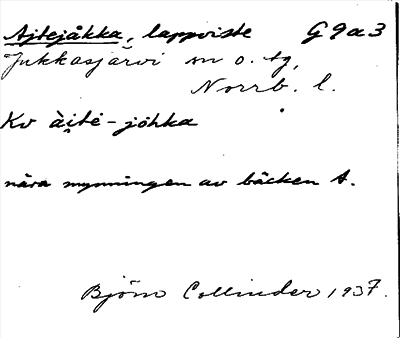 Ajtejåkka, lappviste G 9 a 3
Jukkasjärvi sn o. tg,
Norrb. l.
Kv àı̯tė-jȯhka
nära mynningen av bäcken A.
Björn Collinder 1937.